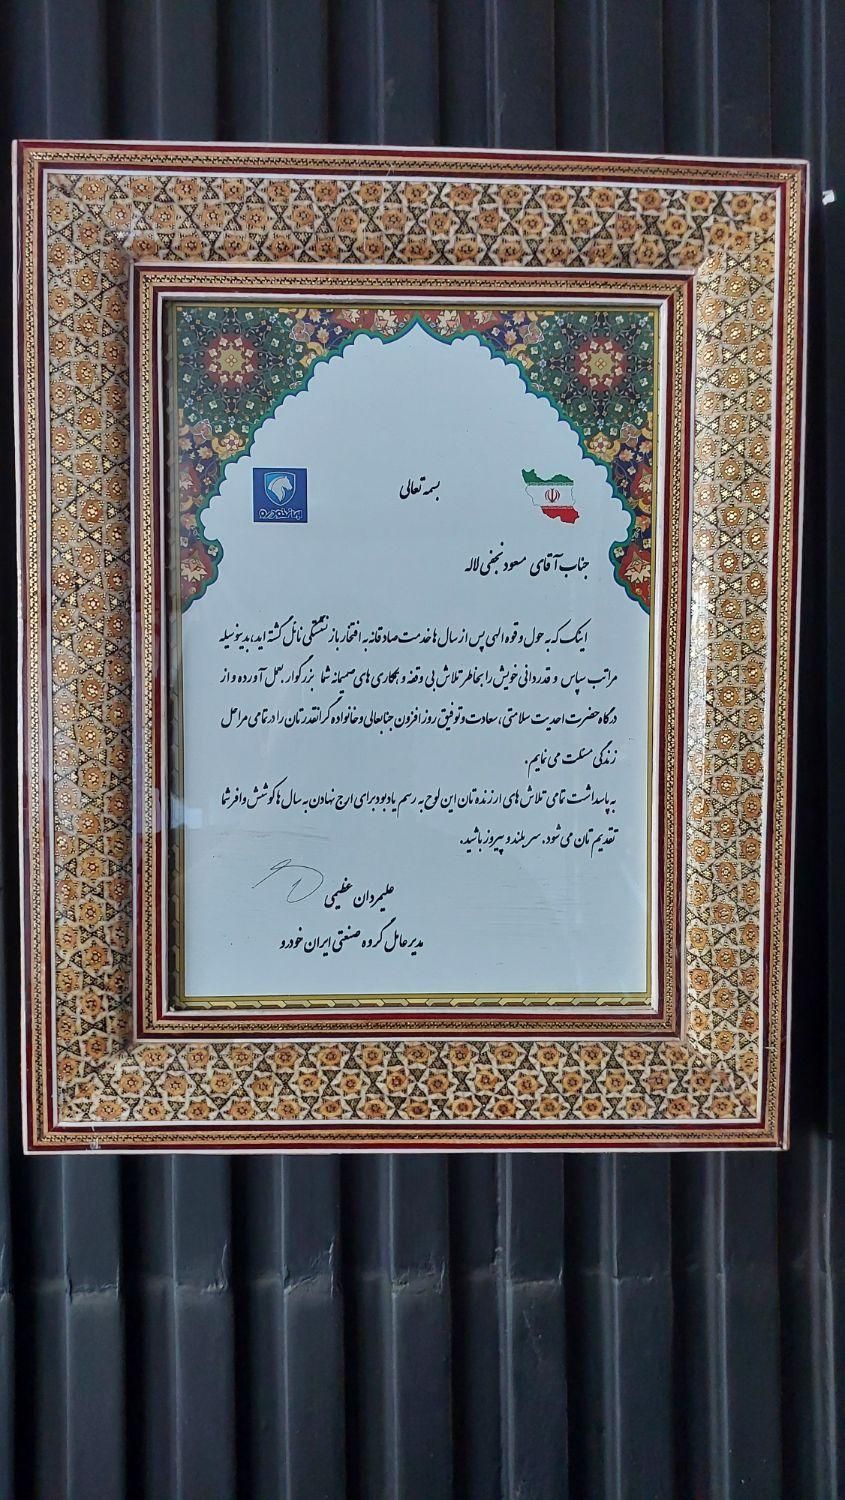 بسمه تعالی
ایران خودرو
جناب آقای مسعود نجفی لاله
اینک که به حول و قوه الهی پس از سال ها خدمت صادقانه به افتخار بازنشستگی نائل گشته اید، بدینوسیله
مراتب سپاس و قدردانی خویش را بخاطر تلاش بی وقفه و همکاری های صمیمانه شما بزرگوار بعمل آورده و از
درگاه حضرت احدیت سلامتی، سعادت و توفیق روز افزون جنابعالی و خانواده گرانقدرتان را در تمامی مراحل
زندگی مسئلت می نمایم.
به پاسداشت تمامی تلاش های ارزنده تان این لوح به رسم یادبود برای ارج نهادن به سال ها کوشش وافر شما
تقدیم تان می شود. سربلند و پیروز باشید.
علیمردان عظیمی
مدیرعامل گروه صنعتی ایران خودرو